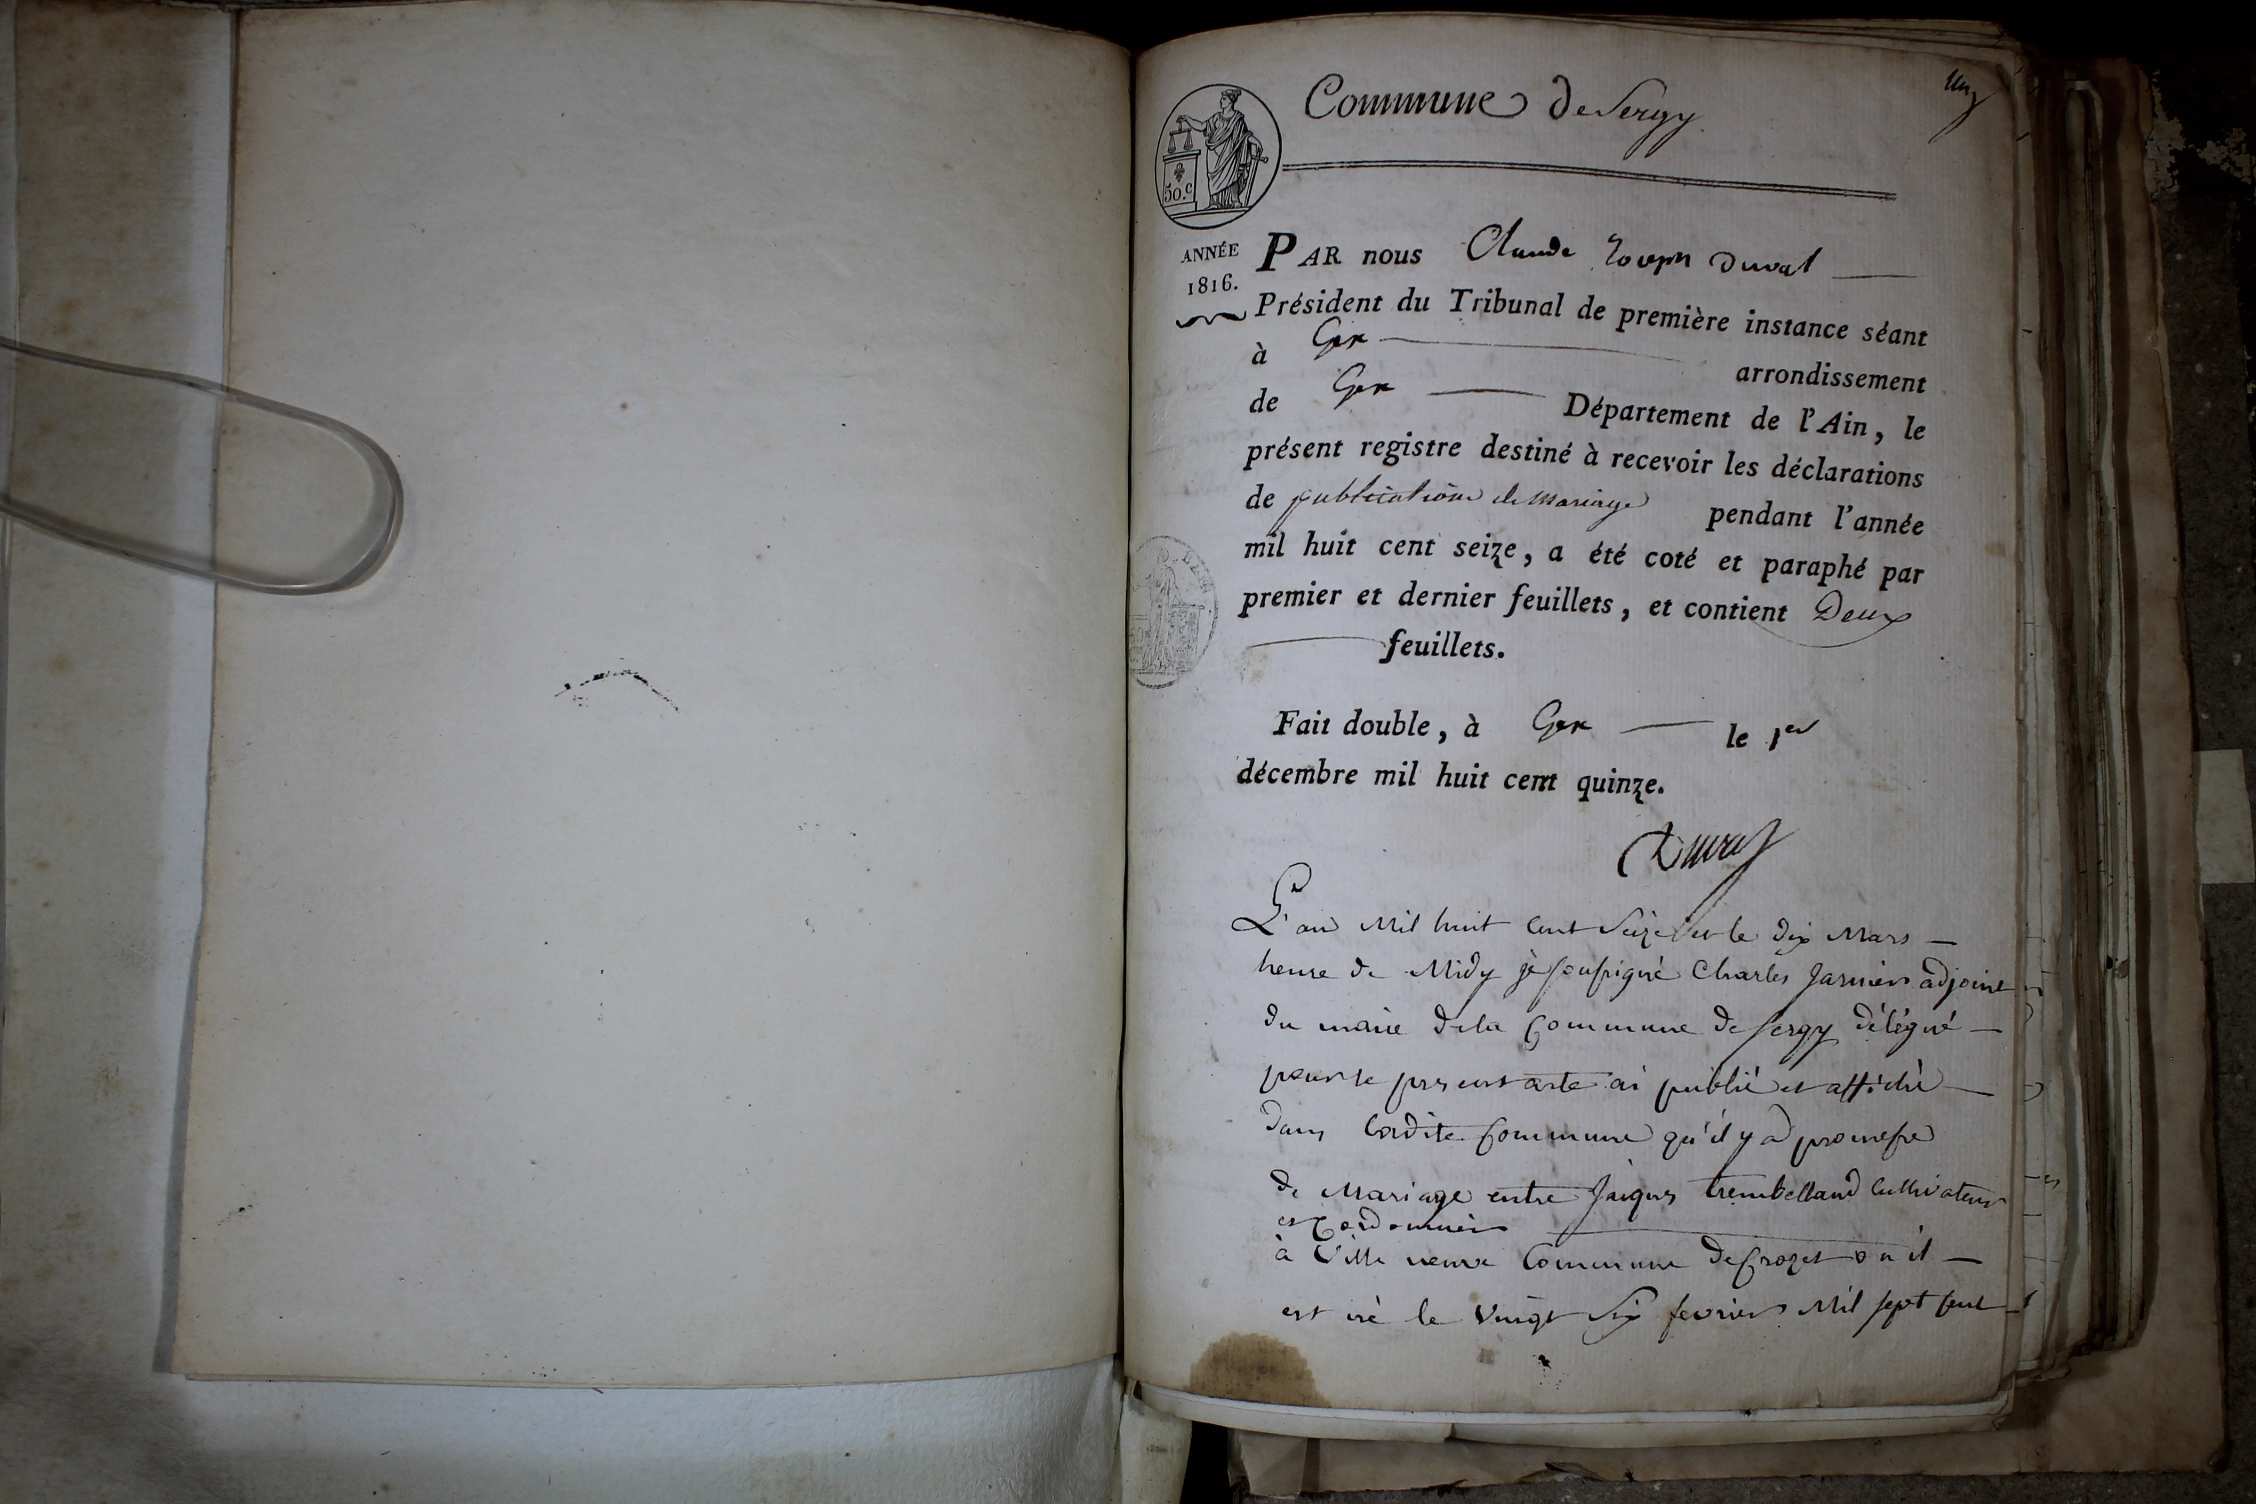 Commune de Sergy
un
50.c
ANNÉE
1816.
PAR nous Claude Joseph Duval
Président du Tribunal de première instance séant
à Gex arrondissement
de Gex Département de l'Ain, le
présent registre destiné à recevoir les déclarations
de publication de mariage pendant l'année
mil huit cent seize, a été coté et paraphé par
premier et dernier feuillets, et contient Deux
feuillets.
Fait double, à Gex le 1er
décembre mil huit cent quinze.
Duval
L'an Mil huit cent Seize et le dix Mars
heure de Midy je soussigné Charles Jarnier adjoint
du maire de la Commune de Sergy délégué
pour le present acte ai publié et affiché
dans ladite Commune qu'il y a promesse
de Mariage entre Jaiques trembelland Cultivateur
et Cordonnier
à Ville neuve Commune de Crozet où il
est né le vingt Six fevrier Mil sept cent